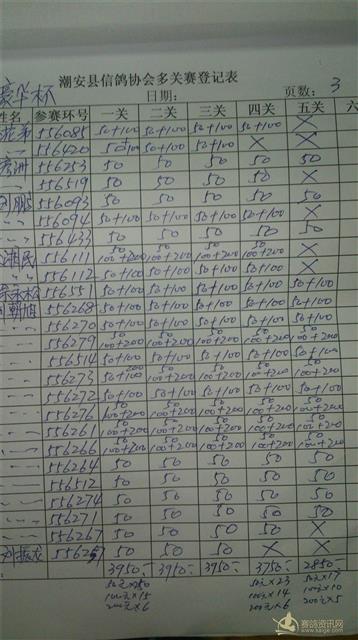 豪华杯
潮安县信鸽协会多关赛登记表
日期： 页数：3
姓名 参赛环号 一关 二关 三关 四关 五关 六
556085 50+100 50+100 50+100 50+100 ×
556420 50+100 50+100 50+100 × ×
556253 50 50 50 50 50
556519 50 50 50 50 ×
刘鹏 556093 50 50 50 50 50
556094 50+100 50+100 50+100 50+100 ×
556433 50 50 50 50 50
556111 50 100+200 50 100+200 50 100+200 50 100+200 ×
556112 50+100 50+100 50+100 50+100 ×
556551 50+100 50+100 50+100 50+100 50+100
556268 50+100 50+100 50+100 50+100 50+100
556270 50+100 50+100 50+100 50+100 50+100
556279 50 100+200 50 100+200 50 100+200 50 100+200 50 100+200
556514 50+100 50+100 50+100 50+100 50+100
556273 50+100 200 50 100+200 50 100+200 50 100+200 50 100+200
556272 50+100 50+100 50+100 50+100 50+100
556276 50 100+200 50 100+200 50 100+200 50 100+200 50 100+200
556261 50 100+200 50 100+200 50 100+200 50 100+200 50 100+200
556266 50 100+200 50 100+200 50 100+200 50 100+200 50 100+200
556264 50 50 50 50 50
556512 50 50 50 50 50
556274 50 50 50 50 50
556271 50 50 50 50 50
556267 50 50 50 50 ×
50 50 50 × ×
3950.- 3950.- 3950.- 3750.- 2850.-
50元×23 50元×17
100元×15 100元×14 100元×10
200元×6 200元×6 200元×5
赛鸽资讯网
www.saige.com